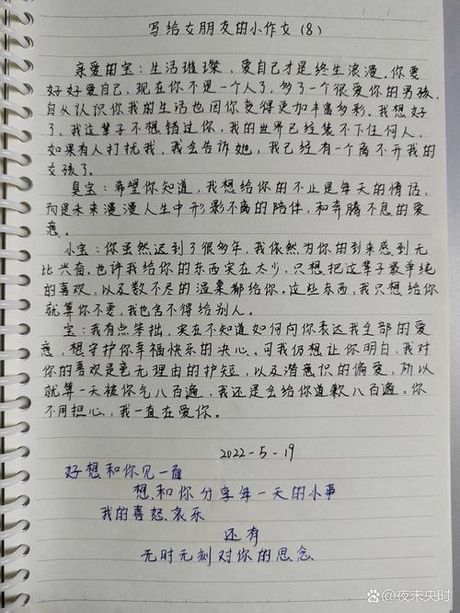 写给女朋友的小作文(8)
亲爱的宝:生活璀璨,爱自己才是终生浪漫。你要
好好爱自己,现在你不是一个人了,多了一个很爱你的男孩。
自从认识你我的生活也因你变得更加丰富多彩。我想好
了、我这辈子不想错过你,我的世界已经装不下任何人,
如果有人打扰我,我会告诉她,我已经有一个离不开我的
女孩了。
臭宝:希望你知道,我想给你的不止是每天的情话,
而是未来漫漫人生中形影不离的陪伴,和奔腾不息的爱
意。
小宝:你虽然迟到了很多年,我依然为你的到来感到无
比兴奋,也许我给你的东西实在太少,只想把这辈子最单纯
的喜欢,以及数不尽的温柔都给你。这些东西,我只想给你
就算你不要,我也舍不得给别人。
宝:我有点笨拙,实在不知道如何向你表达我全部的爱
意,想守护你幸福快乐的决心。可我仍想让你明白,我对
你的喜欢是毫无理由的护短,以及潜意识的偏爱,所以
就算一天被你气八百遍,我还是会给你道歉八百遍。你
不用担心,我一直在爱你。
2022-5-19
好想和你见一面
想和你分享每一天的小事
我的喜怒哀乐
还有
无时无刻对你的思念
Bai百度 @夜未央时